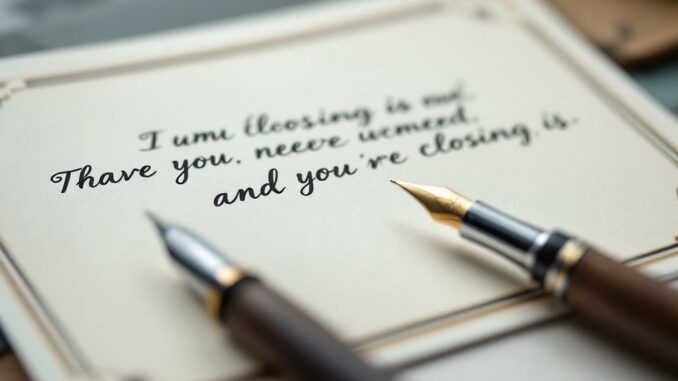 I umu llcosing is me.
Thave you. neere ucmeed.
and you're closing is.